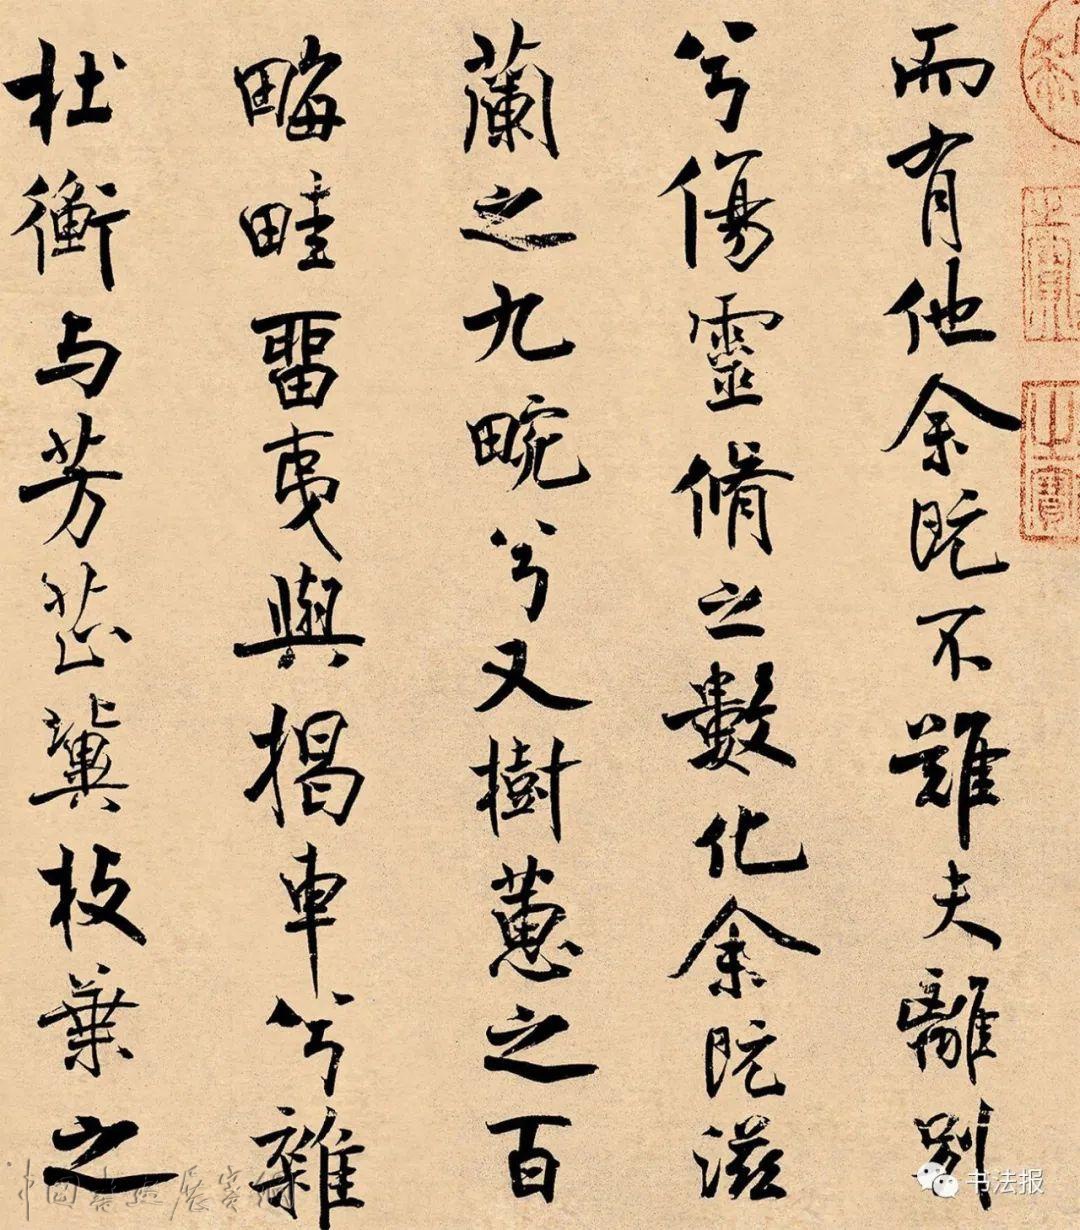 而有他余既不難夫離別
兮傷靈脩之數化余既滋
蘭之九畹兮又樹蕙之百
畮畦畱夷與揭車兮雜
杜衡与芳芷冀枝葉之
之寶
书法报